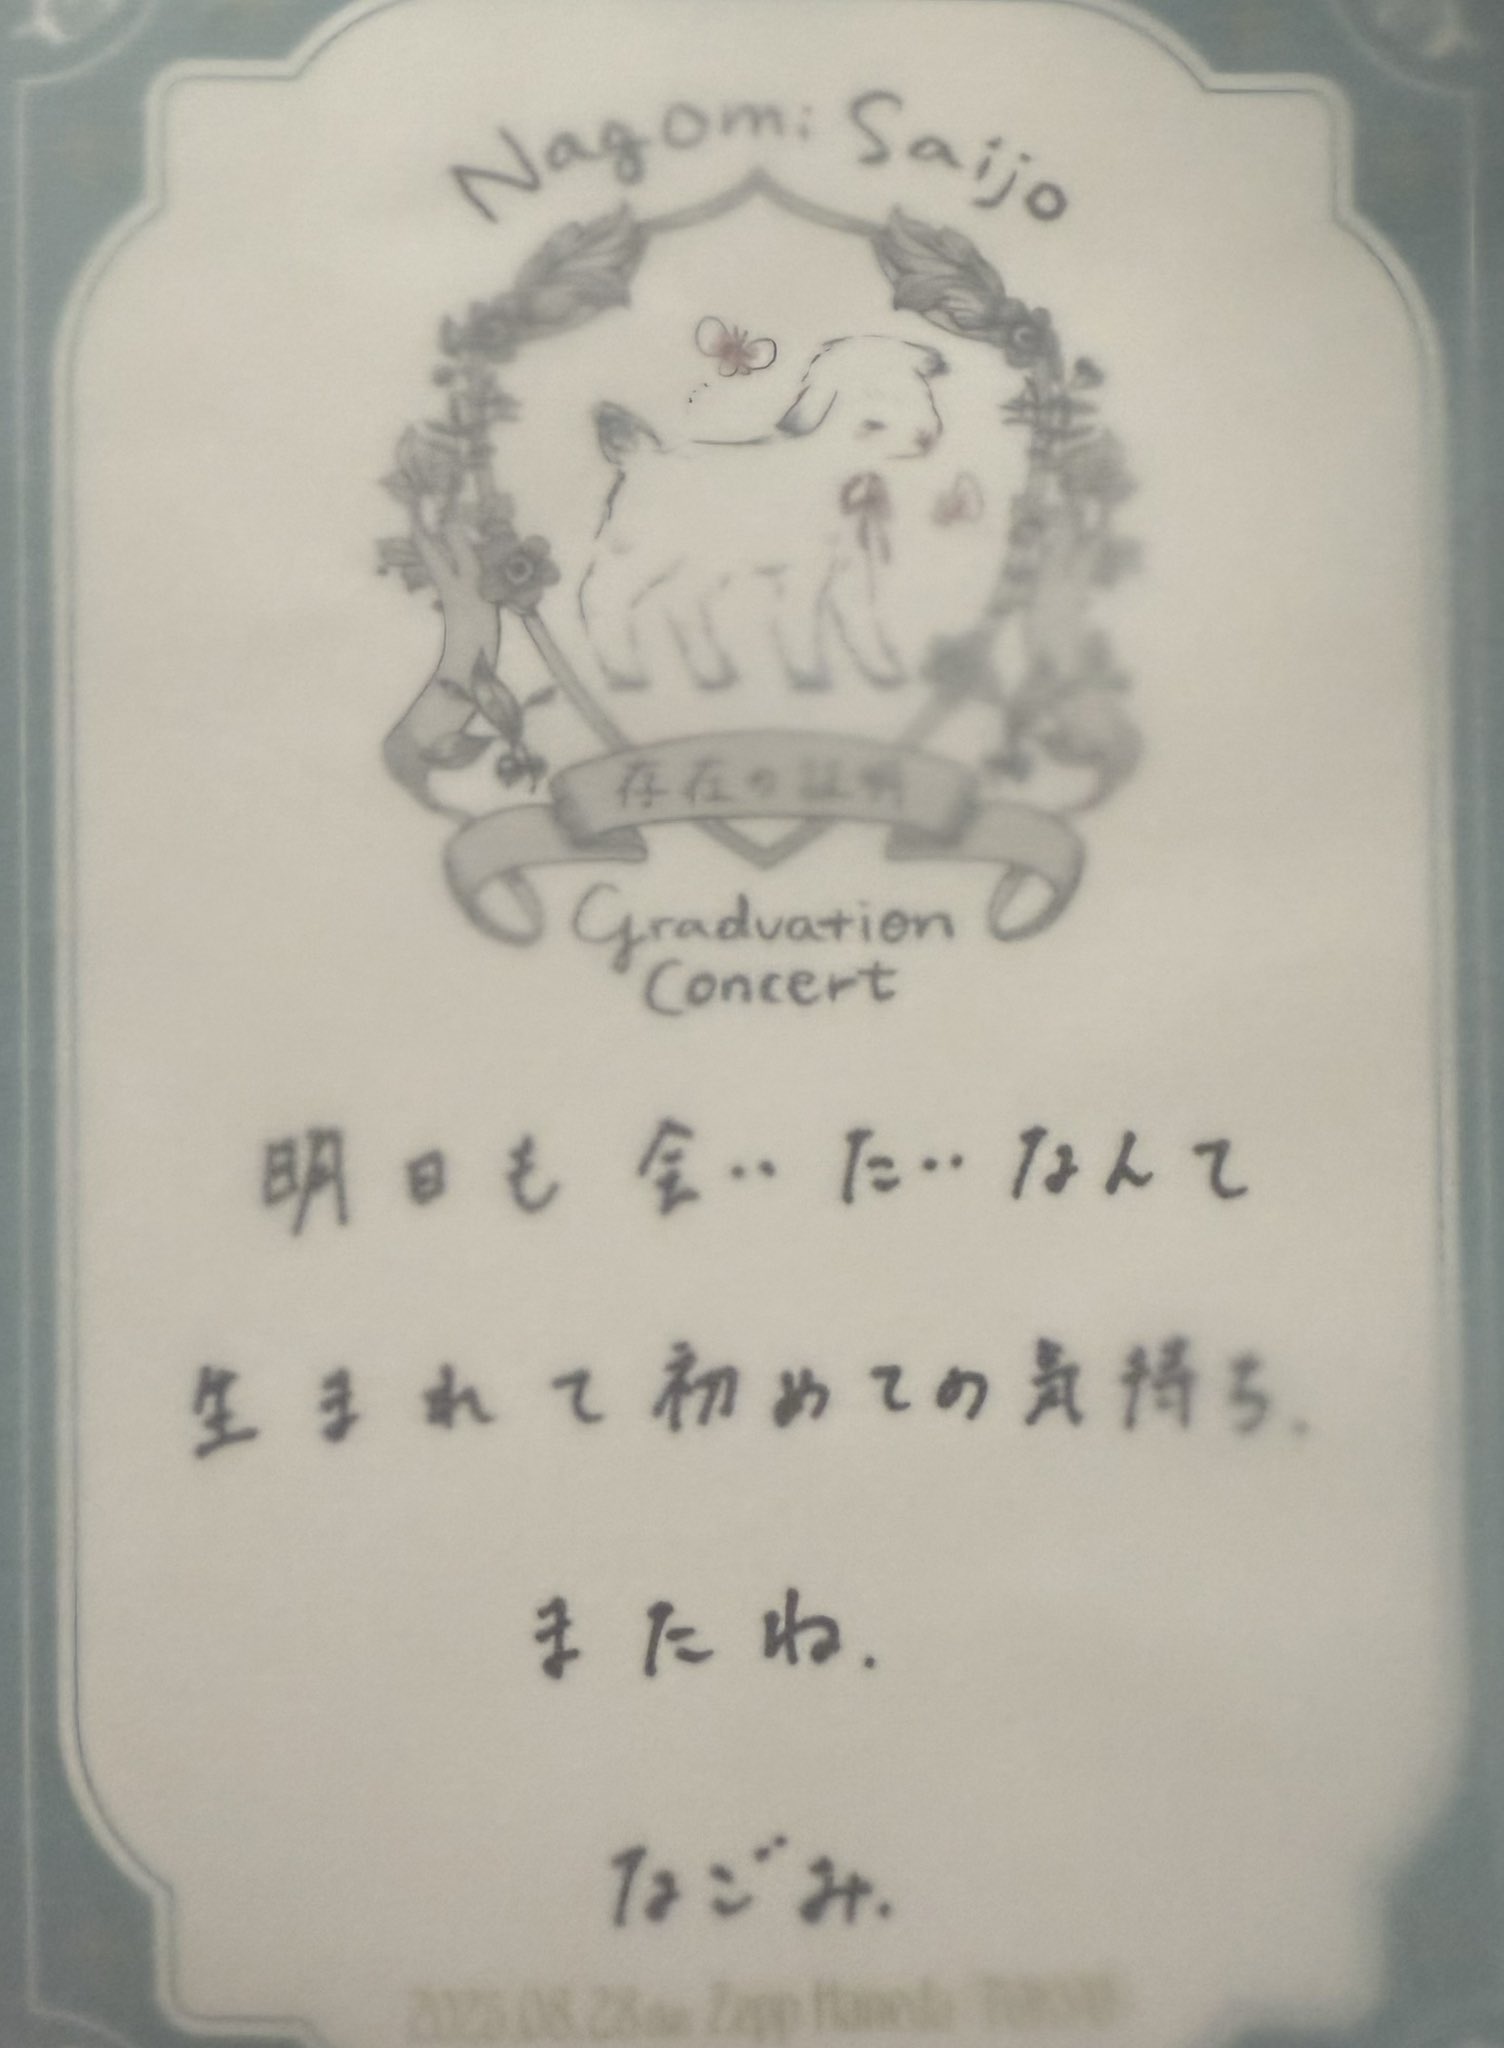 Nagomi Saijo
存在の証明
Graduation
Concert
明日も会‥た‥なんて
生まれて初めての気持ち.
またね.
なごみ.
2025.08.28 Zepp Haneda TOKYO